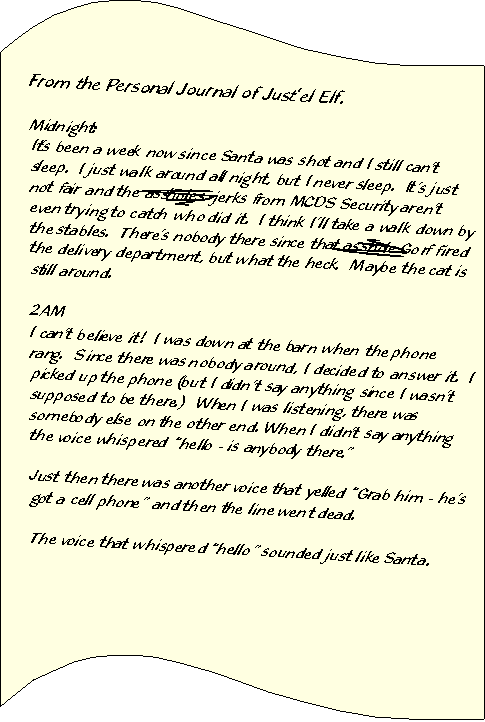 From the Personal Journal of Just'el Elf.
Midnight:
It's been a week now since Santa was shot and I still can't
sleep. I just walk around all night, but I never sleep. It's just
not fair and the jerks from MCDS Security aren't
even trying to catch who did it. I think I'll take a walk down by
the stables. There's nobody there since that Gorf fired
the delivery department, but what the heck. Maybe the cat is
still around.
2AM
I can't believe it! I was down at the barn when the phone
rang. Since there was nobody around, I decided to answer it. I
picked up the phone (but I didn't say anything since I wasn't
supposed to be there.) When I was listening, there was
somebody else on the other end. When I didn't say anything
the voice whispered "hello - is anybody there."
Just then there was another voice that yelled "Grab him - he's
got a cell phone" and then the line went dead.
The voice that whispered "hello" sounded just like Santa.